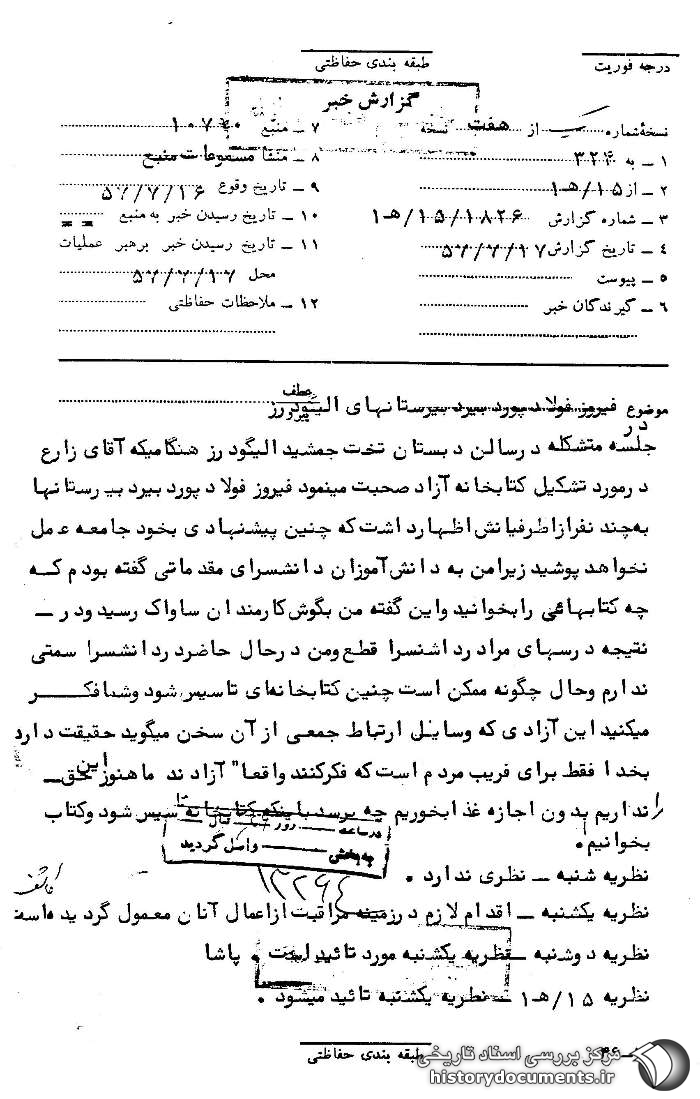 درجه فوریت
طبقه بندی حفاظتی
گزارش خبر
نسخهٔ شماره یک از هفت نسخه
۱ ــ به ۳۲۴
۲ ــ از ۱۵/هـ۱
۳ ــ شماره گزارش ۱۸۲۶/۱۵/هـ۱
۴ ــ تاریخ گزارش ۵۷/۷/۱۷
۵ ــ پیوست
۶ ــ گیرندگان خبر
۷ ــ منبع ۱۰۷۷۰
۸ ــ منشأ مسموعات منبع
۹ ــ تاریخ وقوع ۵۷/۷/۱۶
۱۰ ــ تاریخ رسیدن خبر به منبع
۱۱ ــ تاریخ رسیدن خبر برهبر عملیات
محل ۵۷/۷/۱۷
۱۲ ــ ملاحظات حفاظتی
عطف
موضوع فیروز فولادپور دبیر دبیرستانهای الیگودرز
در
جلسه متشکله در سالن دبستان تخت جمشید الیگودرز هنگامیکه آقای زارع
در مورد تشکیل کتابخانه آزاد صحبت مینمود فیروز فولادپور دبیر دبیرستانها
به چند نفر از اطرفیانش اظهار داشت که چنین پیشنهادی بخود جامعه عمل
نخواهد پوشید زیرا من به دانش‌آموزان دانشسرای مقدماتی گفته بودم که
چه کتابهائی را بخوانید واین گفته من بگوش کارمندان ساواک رسید و در ــ
نتیجه درسهای مرا در داشنسرا قطع ومن در حال حاضر در دانشسرا سمتی
ندارم وحال چگونه ممکن است چنین کتابخانه‌ای تاسیس شود وشما فکر
میکنید این آزادی که وسایل ارتباط جمعی از آن سخن میگوید حقیقت دارد
بخدا فقط برای فریب مردم است که فکر کنند واقعا" آزادند ما هنوز این حق ــ
را نداریم بدون اجازه غذا بخوریم چه برسد باینکه کتابخانه تاسیس شود وکتاب
بخوانیم.
در ساعه روز سال
به بخش واصل گردید
۱۳۲۶۴
نظریه شنبه ــ نظری ندارد .
نظریه یکشنبه ــ اقدام لازم در زمینه مراقبت از اعمال آنان معمول گردیده است
نظریه دوشنبه ــ نظریه یکشنبه مورد تائید است . پاشا
نظریه ۱۵/هـ۱ ــ نظریه یکشنبه تائید میشود .
طبقه بندی حفاظتی
مرکز بررسی اسناد تاریخی
historydocuments.ir